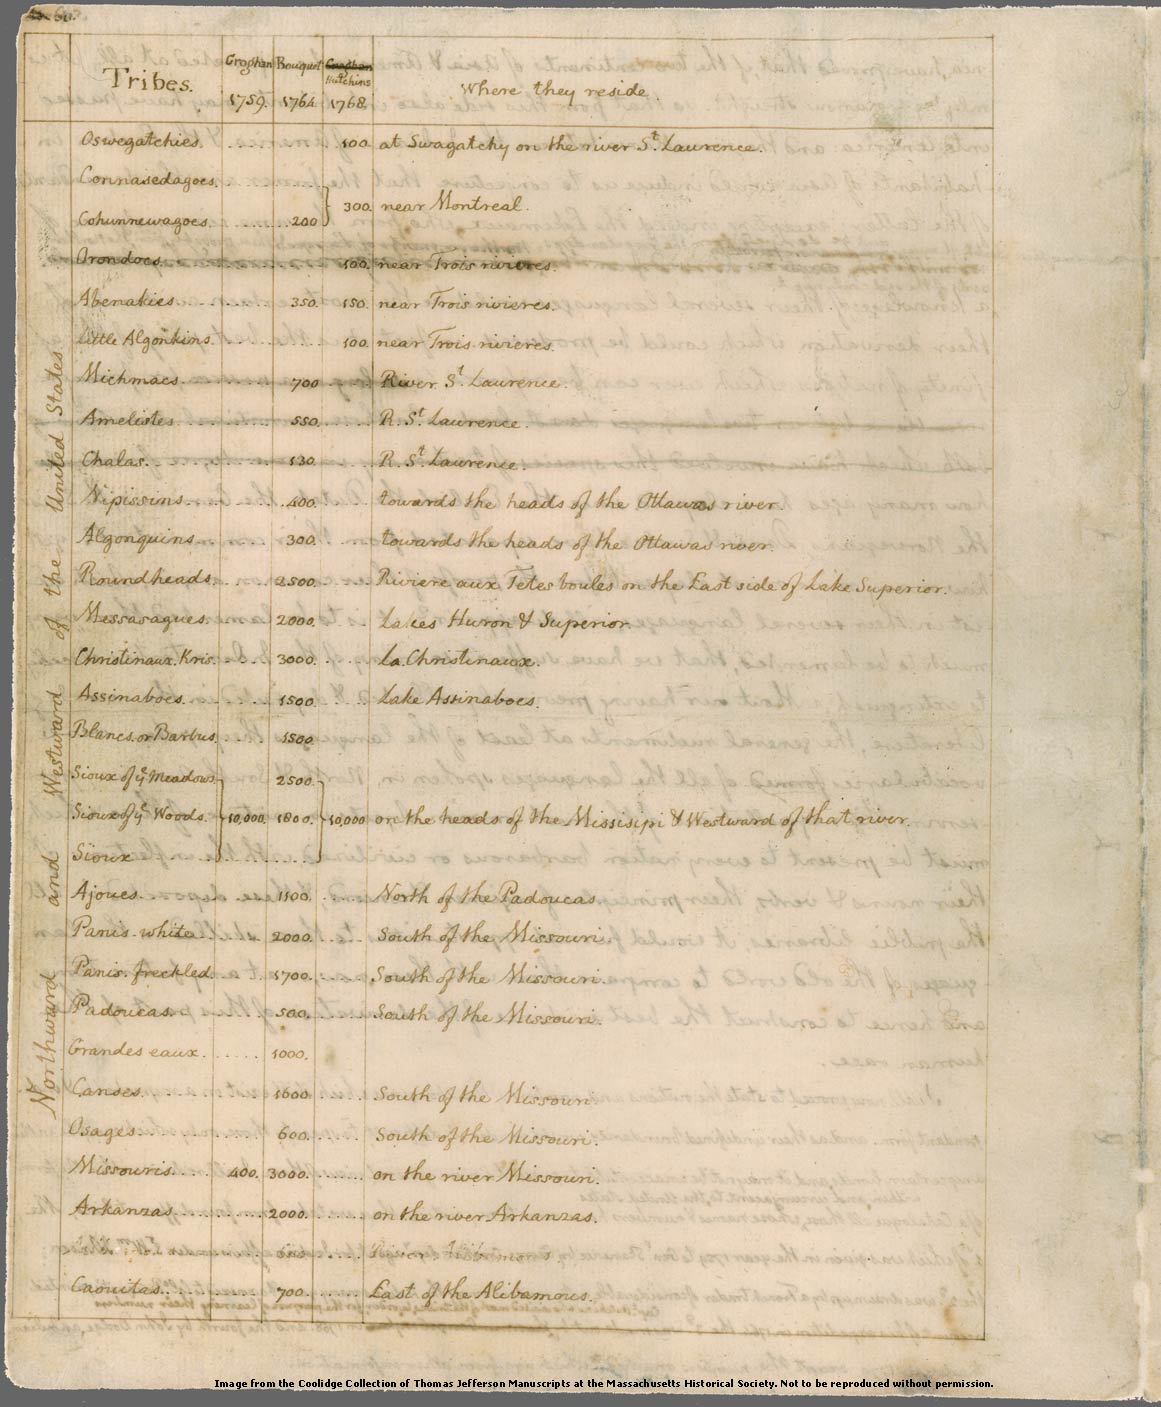 Tribes. Croghan 1759. Bouquet 1764. Croghan Hutchins 1768. Where they reside.
Northward and Westward of the United States
Oswegatchies. 100. at Swagatchy on the river St. Laurence.
Connasedagoes.
300. near Montreal.
Cohunnewagoes. 200
Orondocs. 100. near Trois rivieres.
Abenakies 350. 150. near Trois rivieres.
little Algonkins. 100. near Trois rivieres.
Michmacs. 700 River St. Laurence.
Amelistes. 550. R. St. Laurence.
Chalas. 130. R. St. Laurence.
Nipissins. 400. towards the heads of the Ottawas river.
Algonquins. 300. towards the heads of the Ottawas river.
Roundheads. 2500. Riviere aux Tetes boules on the East side of Lake Superior.
Messasagues. 2000. Lakes Huron & Superior.
Christinaux. Kris. 3000. La. Christinaux.
Assinaboes. 1500. Lake Assinaboes.
Blancs. or Barbus. 1500
Sioux of ye Meadows 2500.
Sioux of ye Woods. 10,000. 1800. 10,000 on the heads of the Missisipi & Westward of that river.
Sioux
Ajoues. 1100. North of the Padoucas.
Panis. white. 2000. South of the Missouri.
Panis. freckled. 1700. South of the Missouri.
Padoucas. 500. South of the Missouri.
Grandes eaux. 1000.
Canses. 1600. South of the Missouri.
Osages. 600. South of the Missouri.
Missouris. 400. 3000. on the river Missouri.
Arkanzas. 2000. on the river Arkanzas.
Caouitas. 700. East of the Alibamous.
Image from the Coolidge Collection of Thomas Jefferson Manuscripts at the Massachusetts Historical Society. Not to be reproduced without permission.